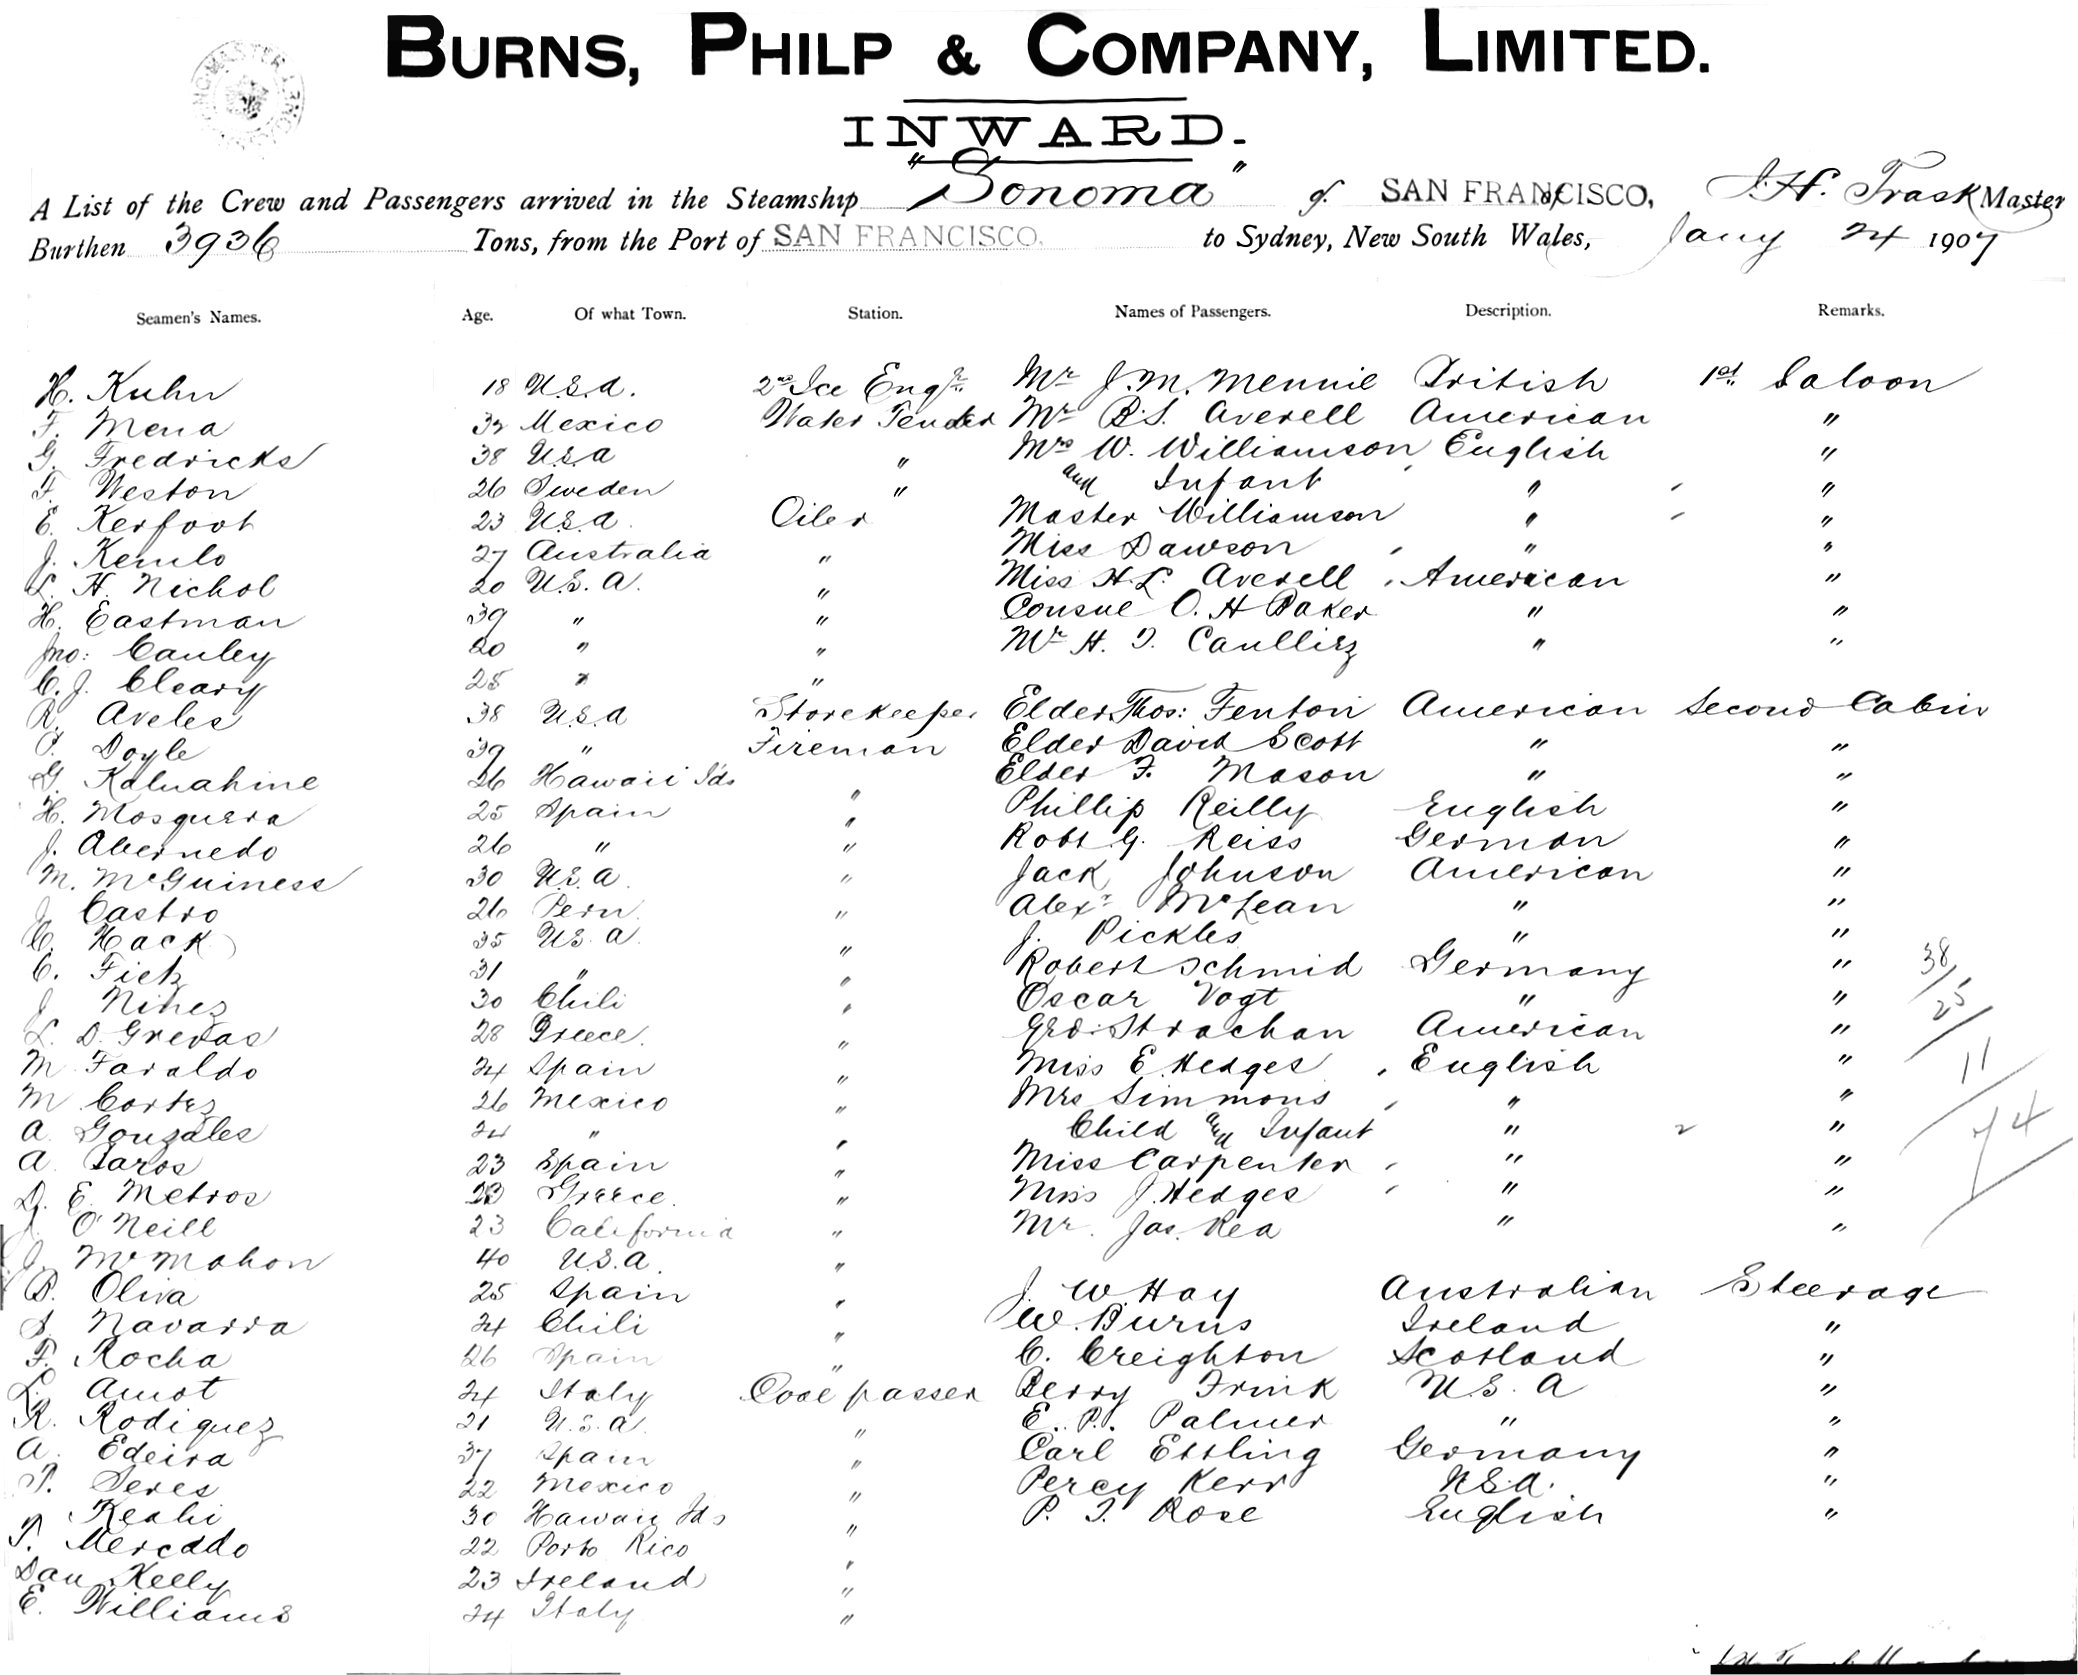 BURNS, PHILP & COMPANY, LIMITED.
INWARD.
A List of the Crew and Passengers arrived in the Steamship "Sonoma" of SAN FRANCISCO, J. H. Trask Master
Burthen 3936 Tons, from the Port of SAN FRANCISCO. to Sydney, New South Wales, Jany 24 1907
Seamen's Names. Age. Of what Town. Station. Names of Passengers. Description. Remarks.
H. Kuhn 18 U.S.A. 2nd Ice Engr. Mr J. M. Mennie British 1st. Saloon
F. Mena 32 Mexico Water Tender Mr R.S. Averell American "
G. Fredricks 38 U.S.A " Mrs W. Williamson English "
F. Weston 26 Sweden " and Infant " "
E. Kerfoot 23 U.S.A. Oiler Master Williamson " "
J. Kemlo 27 Australia " Miss Dawson " "
L. H. Nichol 20 U.S.A. " Miss H.L. Averell American "
H. Eastman 39 " " Consul O. H Baker " "
Jno: Cauley 20 " " Mr H. J. Caullisz " "
C. J. Cleary 25 " "
R. Aveles 38 U.S.A Storekeeper Elder Thos: Fenton American Second Cabin
P. Doyle 39 " Fireman Elder David Scott " "
G. Kaluahine 26 Hawaii Ids " Elder F. Mason " "
H. Mosquera 25 Spain " Phillip Reilly English "
J. Abernedo 26 " " Robt G. Reiss German "
M. McGuiness 30 U.S.A. " Jack Johnson American "
J. Castro 26 Peru. " Alexr McLean " "
C. Hack 35 U.S.A. " J. Pickles " "
C. Fick 31 " " Robert Schmid Germany " 38
J Nihez 30 Chili " Oscar Vogt " " 25
L. D. Grevas 28 Greece. " Geo: Strachan American "
M. Faraldo 24 Spain " Miss E. Hedges English " 11
M Cortez 26 Mexico " Mrs Simmons " "
A. Gonzales 24 " " Child and Infant " 2 " 74
A. Saros 23 Spain " Miss Carpenter " "
D. E. Metros 23 Greece. " Miss J. Hedges " "
J. O'Neill 23 California " Mr. Jas. Rea " "
J. McMahon 40 U.S.A. "
B. Oliva 25 Spain " J. W. Hay Australian Steerage
S Navarra 24 Chili " W. Burns Ireland "
F. Rocha 26 Spain " C. Creighton Scotland "
L. Amot 24 Italy Coal passer Berry Frink U.S.A "
R. Rodiguez 21 U.S.A. " E. P. Palmer " "
A. Edeira 37 Spain " Carl Ettling Germany "
P. Seres 22 Mexico " Percy Kerr U.S.A. "
Kealii 30 Hawaii Ids " P. J. Rose English "
P. Mercado 22 Porto Rico "
Dan Kelly 23 Ireland "
E. Williams 24 Italy "